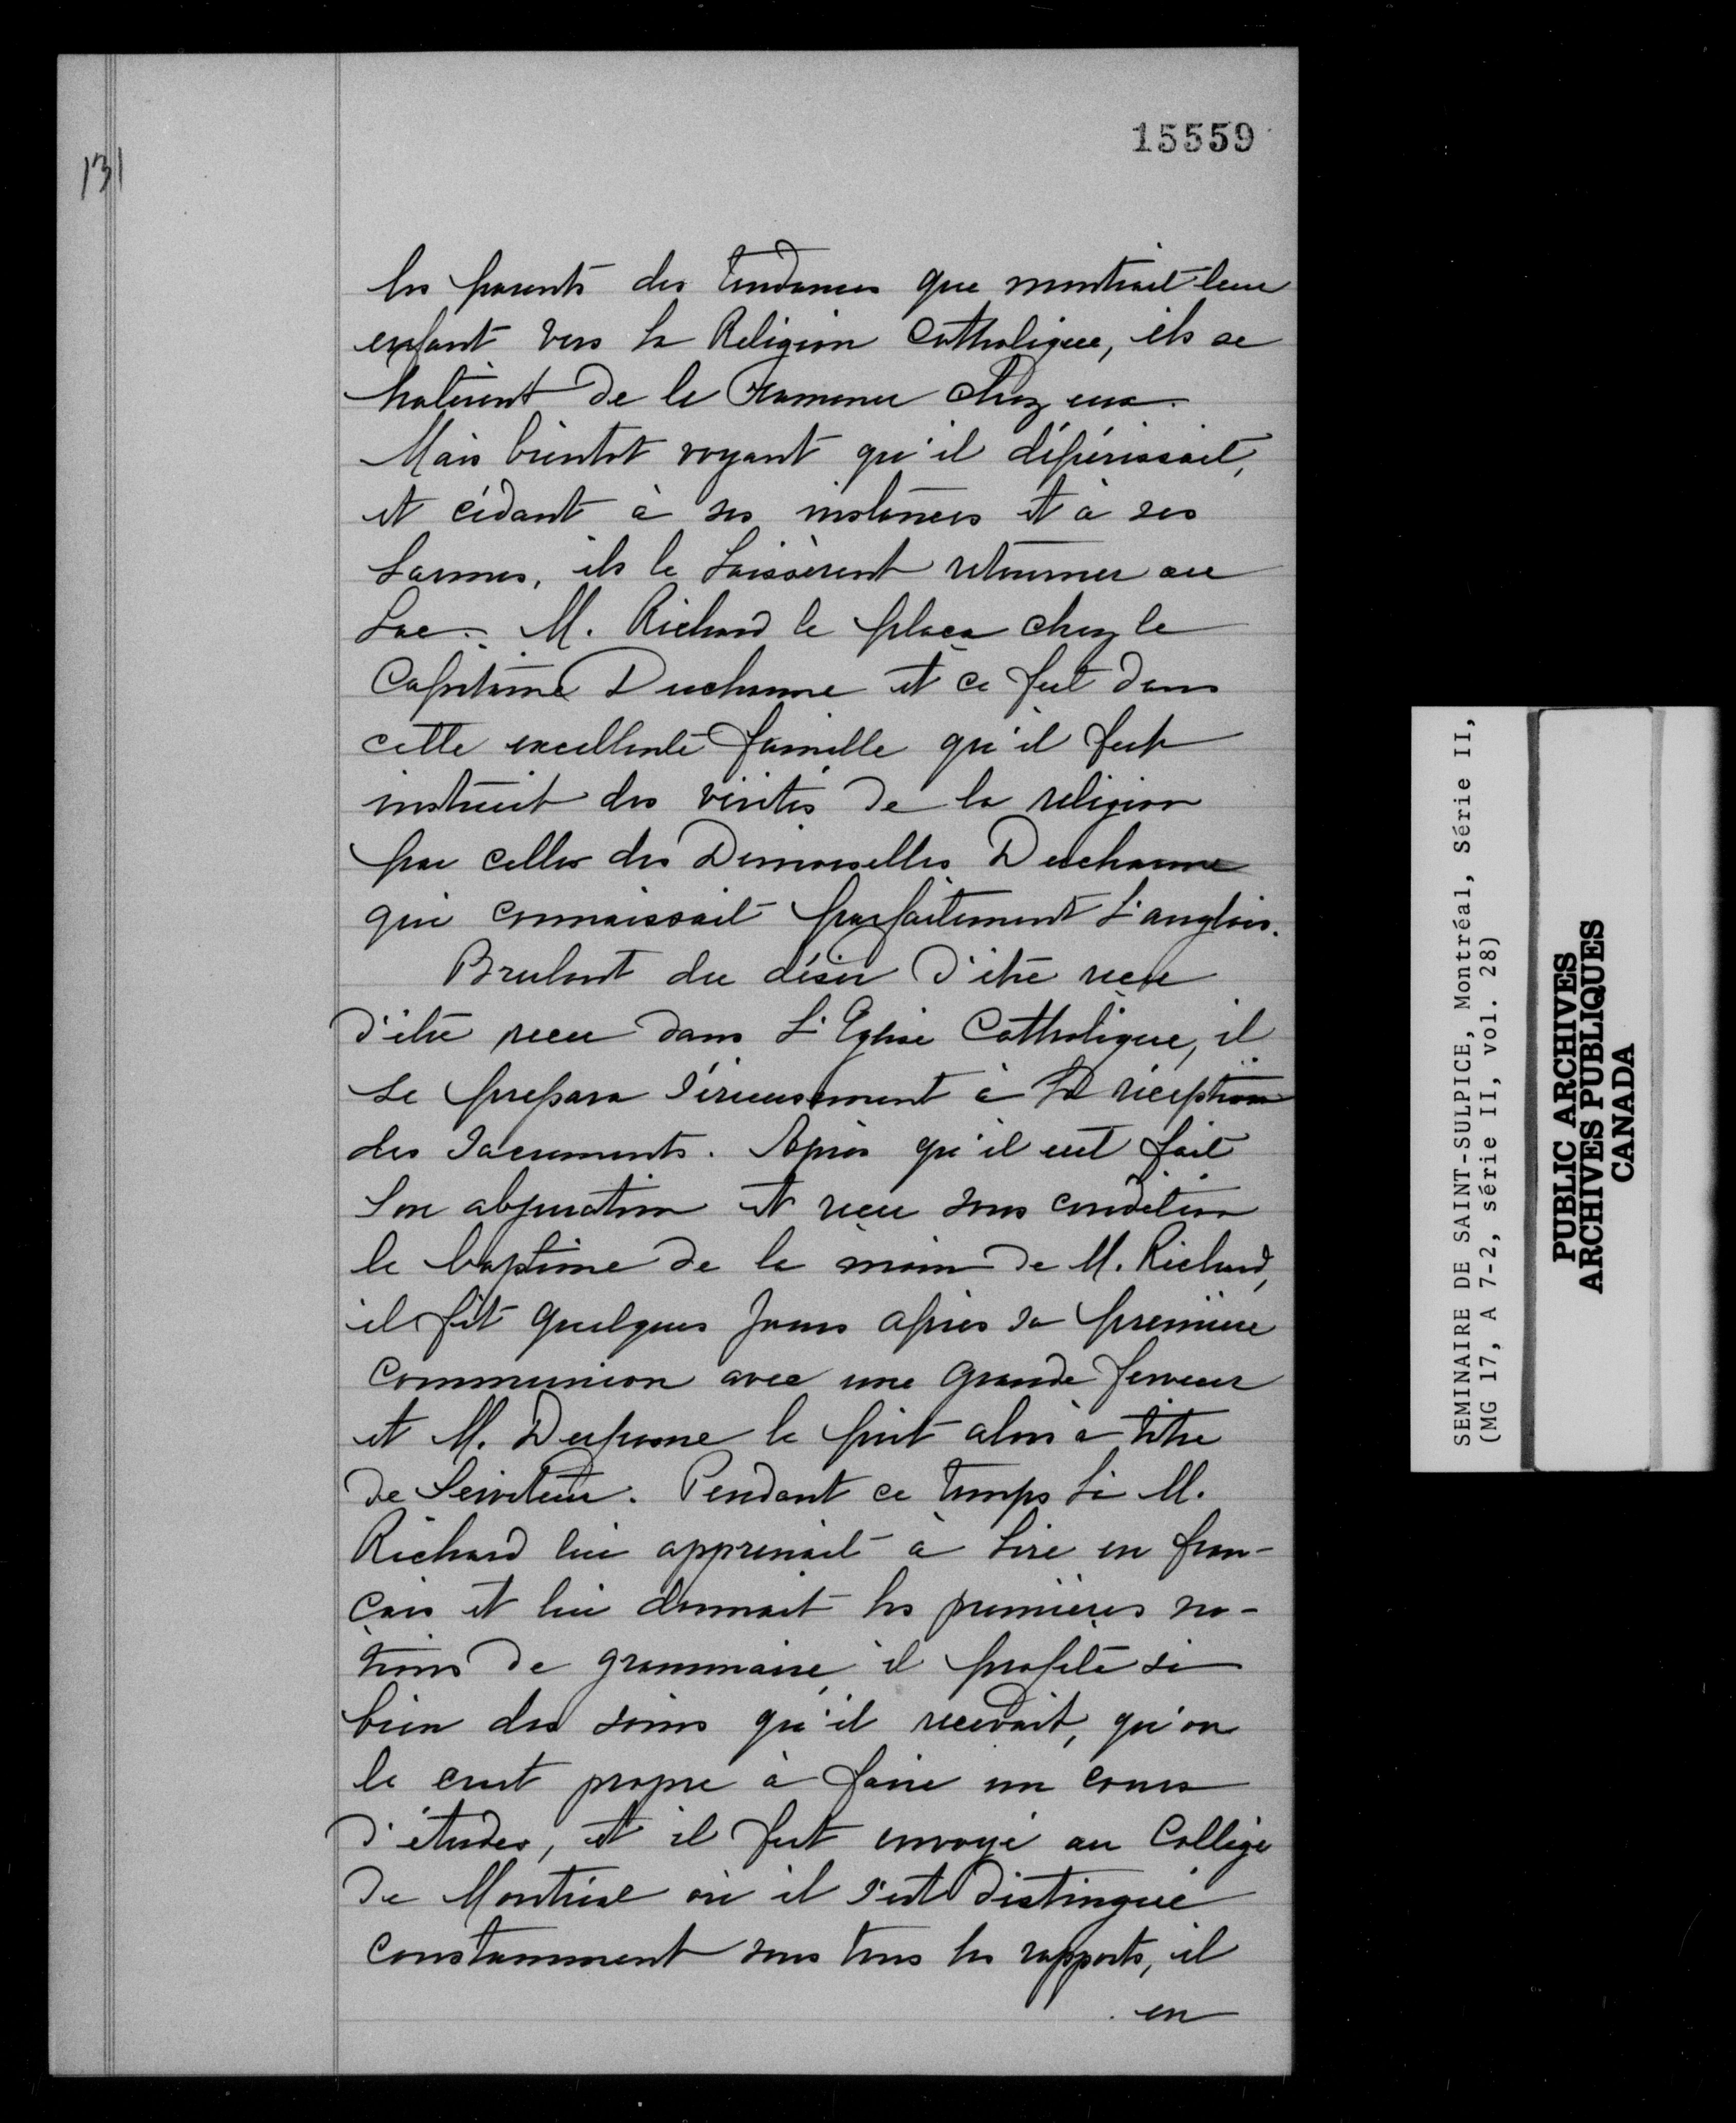 15559
131
les parents des tendances que montrait leur
enfant vers la Religion Catholique, ils se
hatèrent de le ramener chez eux.
Mais bientot voyant qu'il dépérissait,
et cédant à ses instances et à ses
larmes, ils le laissèrent retourner au
Lac. M. Richard le plaça chez le
Capitaine Ducharme et ce fut dans
cette excellente famille qu'il fut
instruit des vérités de la religion
par celles des Demoiselles Ducharme
qui connaissait parfaitement l'anglais.
Brulant du désir d'être reçu
d'être reçu dans l'Eglise Catholique, il
se prepara sérieusement à la réception
des Sacrements. Après qu'il eut fait
son abjuration et reçu sous condition
le baptême de la main de M. Richard,
il fit quelques jours après sa première
communion avec une grande ferveur
et M. Dufresne le prit alors à titre
de Serviteur. Pendant ce temps là M.
Richard lui apprenait à lire en fran-
çais et lui donnait les premières no-
tions de grammaire, il profita si
bien des soins qu'il recevait, qu'on
le crut propre à faire un cours
d'études, et il fut envoyé au Collège
de Montréal où il s'est distingué
constamment sous tous les rapports, il
en
SEMINAIRE DE SAINT-SULPICE, Montréal, Série II,
(MG 17, A 7-2, série II, vol. 28)
PUBLIC ARCHIVES
ARCHIVES PUBLIQUES
CANADA